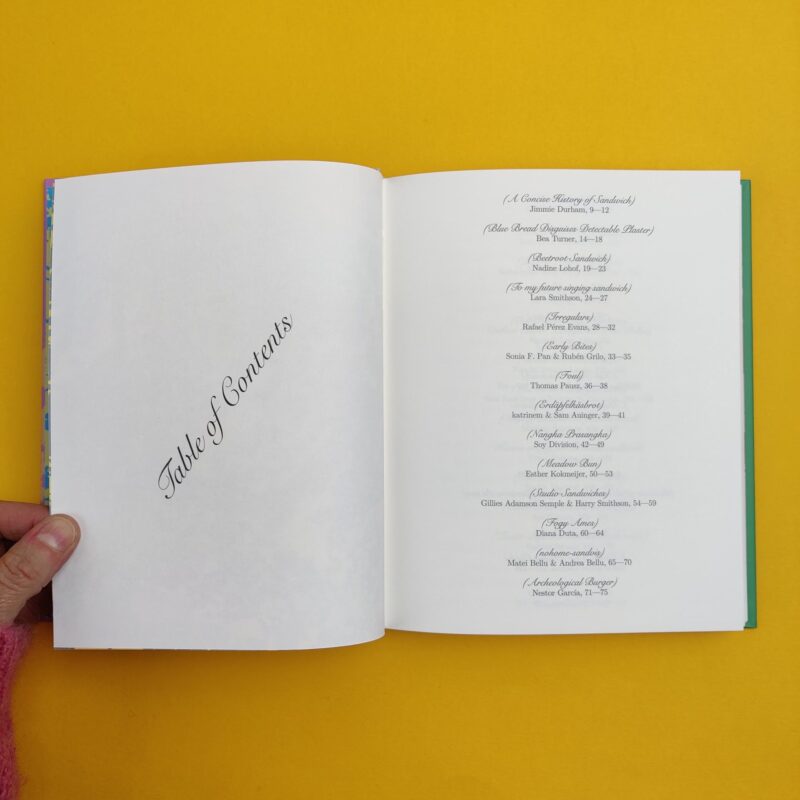 Table of Contents
(A Concise History of Sandwich)
Jimmie Durham, 9—12
(Blue Bread Disguises Detectable Plaster)
Bea Turner, 14—18
(Beetroot-Sandwich)
Nadine Lohof, 19—23
(To my future singing sandwich)
Lara Smithson, 24—27
(Irregulars)
Rafael Pérez Evans, 28—32
(Early Bites)
Sonia F. Pan & Rubén Grilo, 33—35
(Foul)
Thomas Pausz, 36—38
(Erdäpfelkäsbrot)
katrinem & Sam Auinger, 39—41
(Nangka Prasangka)
Soy Division, 42—49
(Meadow Bun)
Esther Kokmeijer, 50—53
(Studio Sandwiches)
Gillies Adamson Semple & Harry Smithson, 54—59
(Fogy Ames)
Diana Duta, 60—64
(nohome-sandvis)
Matei Bellu & Andrea Bellu, 65—70
(Archeological Burger)
Nestor García, 71—75